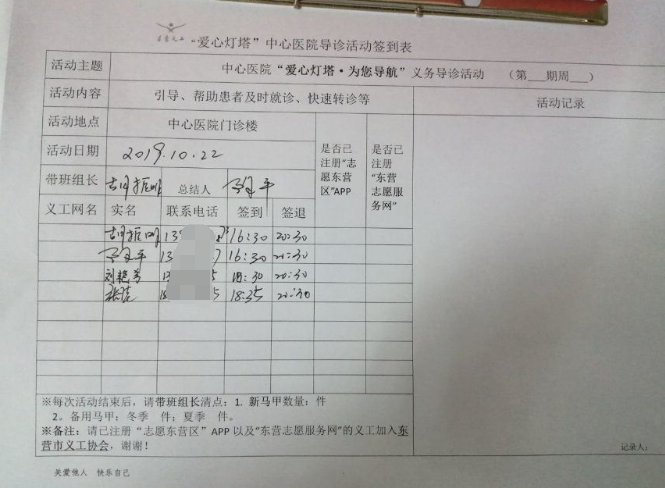 “爱心灯塔”中心医院导诊活动签到表
活动主题 中心医院“爱心灯塔·为您导航”义务导诊活动 （第___期周___）
活动内容 引导、帮助患者及时就诊、快速转诊等 活动记录
活动地点 中心医院门诊楼
是否已注册“志愿东营区”APP
是否已注册“东营志愿服务网”
活动日期 2019.10.22
带班组长 胡振明 总结人
义工网名 实名 联系电话 签到 签退
胡振明 13 16:30 20:30
13 16:30 20:30
刘艳芳 18:30 20:30
张洁 18:35 20:30
※每次活动结束后，请带班组长清点：1. 新马甲数量： 件
2。备用马甲：冬季 件；夏季 件。
※备注：请已注册“志愿东营区”APP 以及“东营志愿服务网”的义工加入东
营市义工协会，谢谢！
记录人：
关爱他人 快乐自己